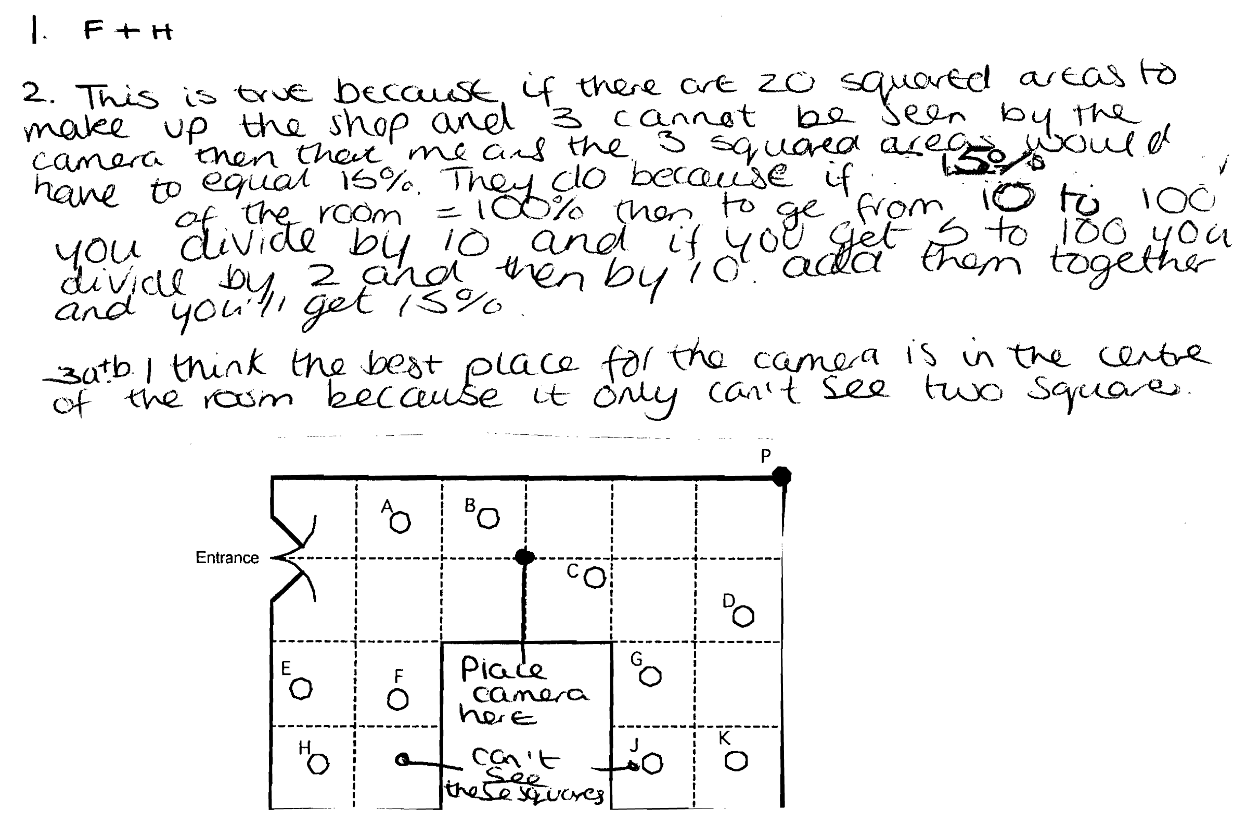 1. F + H
2. This is true because if there are 20 squared areas to
make up the shop and 3 cannot be seen by the
camera then that means the 3 squared areas would
have to equal 15%. They do because if 15%
of the room = 100% then to ge from 10 to 100
you divide by 10 and if you get 5 to 100 you
divide by 2 and then by 10. add them together
and you'll get 15%.
3a+b. I think the best place for the camera is in the centre
of the room because it only can't see two squares.
P
A
B
Entrance
C
D
E
F
Place
camera
here
G
H
can't
see
these squares
J
K